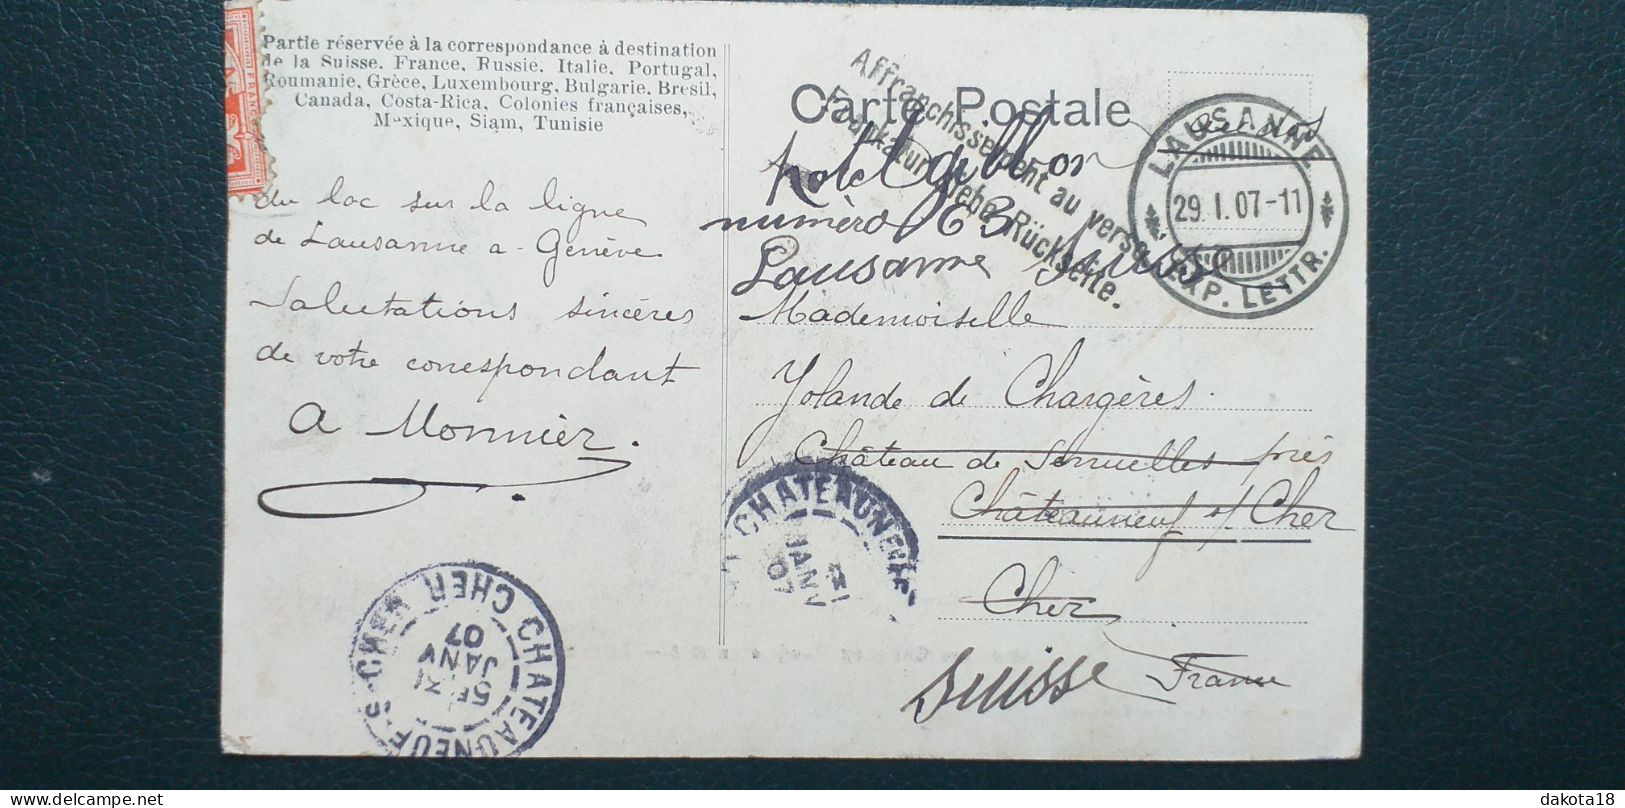 Partie réservée à la correspondance à destination
de la Suisse, France, Russie, Italie, Portugal,
Roumanie, Grèce, Luxembourg, Bulgarie, Brésil,
Canada, Costa-Rica, Colonies françaises,
Mexique, Siam, Tunisie
FRANCO
du lac sur la ligne
de Lausanne a Genève
Salutations sincères
de votre correspondant
A Monnier.
Carte Postale
Affranchissement au verso.
Frankatur siehe Rückseite.
LAUSANNE
29.I.07-11
EXP. LETTR.
hotel gibbon
numèro 63
Lausanne Suisse
Mademoiselle
Yolande de Chargères.
Château de Serruelles près
Châteauneuf s/ Cher
Cher
France
Suisse
CHATEAUNEUF
JANV
07
CHATEAUNEUF S-CHER CHER
5E 31
JANV
07
delcampe.net
dakota18